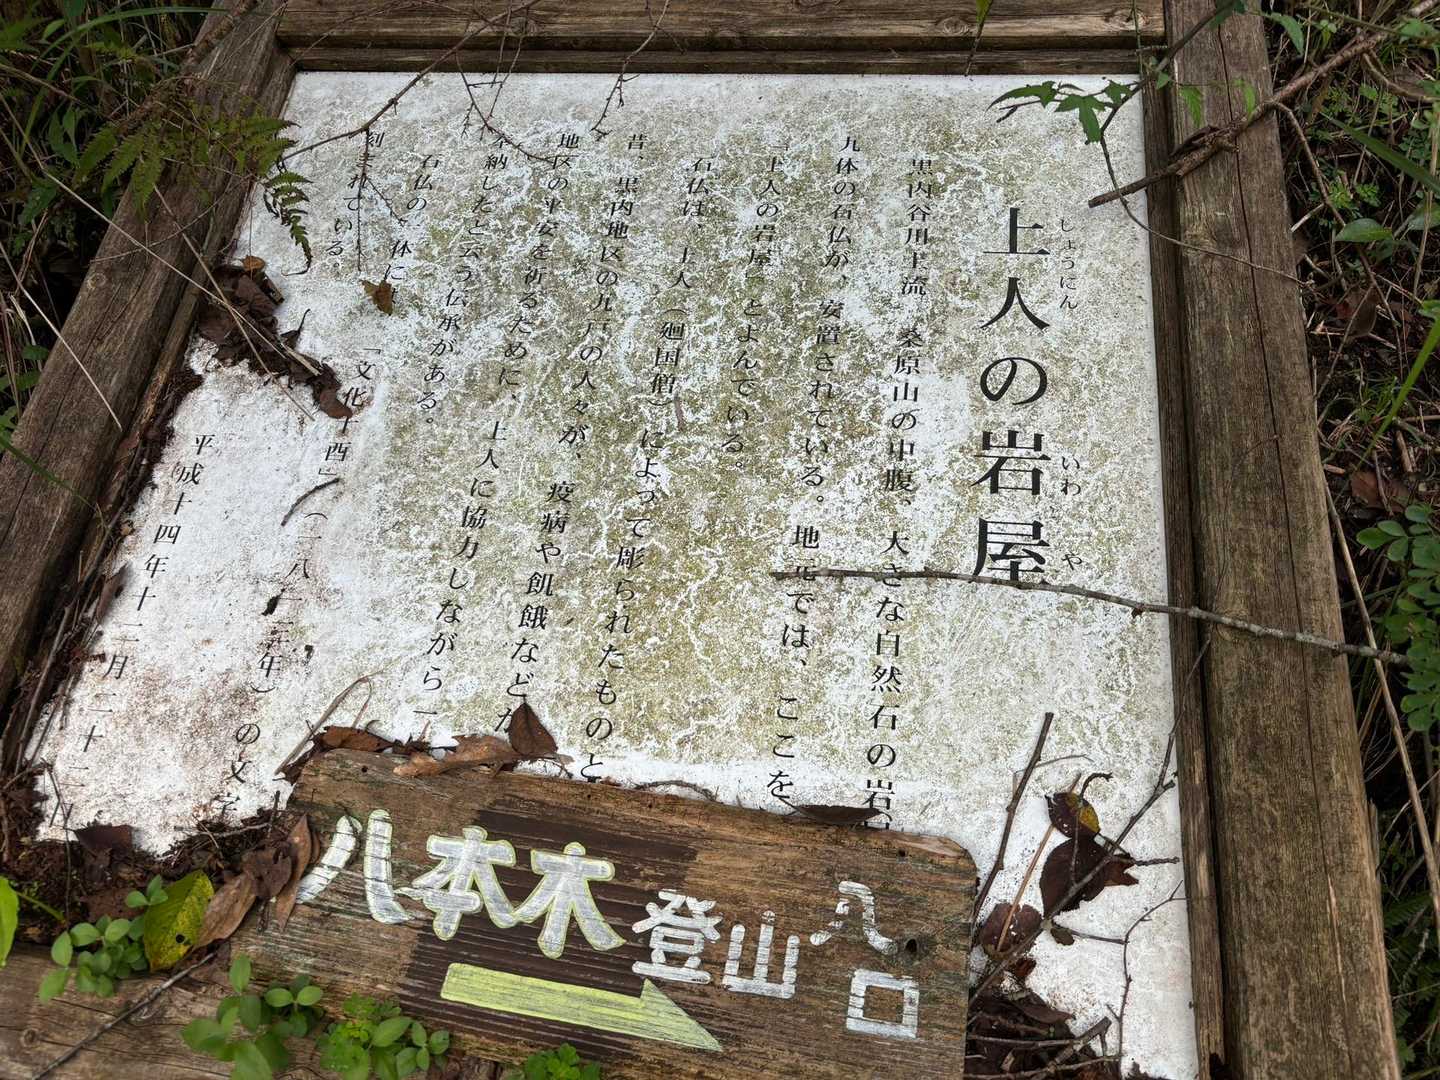 上人の岩屋
しょうにん
いわや
黒内谷川上流 桑原山の中腹、大きな自然石の岩
九体の石仏が、安置されている。地元では、ここを
「上人の岩屋」とよんでいる。
石仏は、上人（廻国僧）によって彫られたものと
昔、黒内地区の九戸の人々が、疫病や飢餓などか
地区の平安を祈るために、上人に協力しながら一
奉納したと云う伝承がある。
石仏の一体には、「文化十酉」（一八一三年）の文字
刻まれている。
平成十四年十二月二十二
八本木
登山
入口